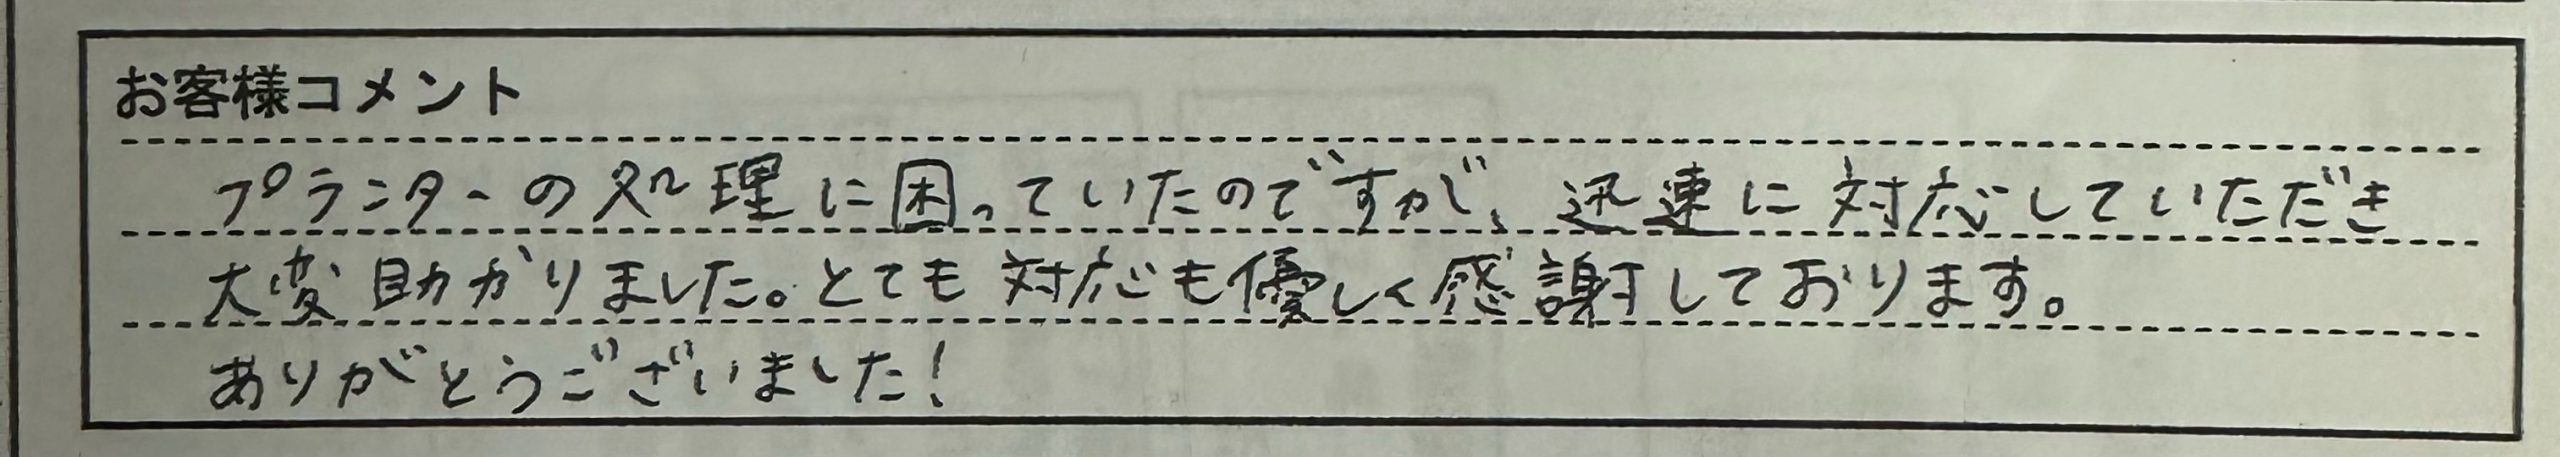 お客様コメント
プランターの処理に困っていたのですが、迅速に対応していただき
大変助かりました。とても対応も優しく感謝しております。
ありがとうございました!